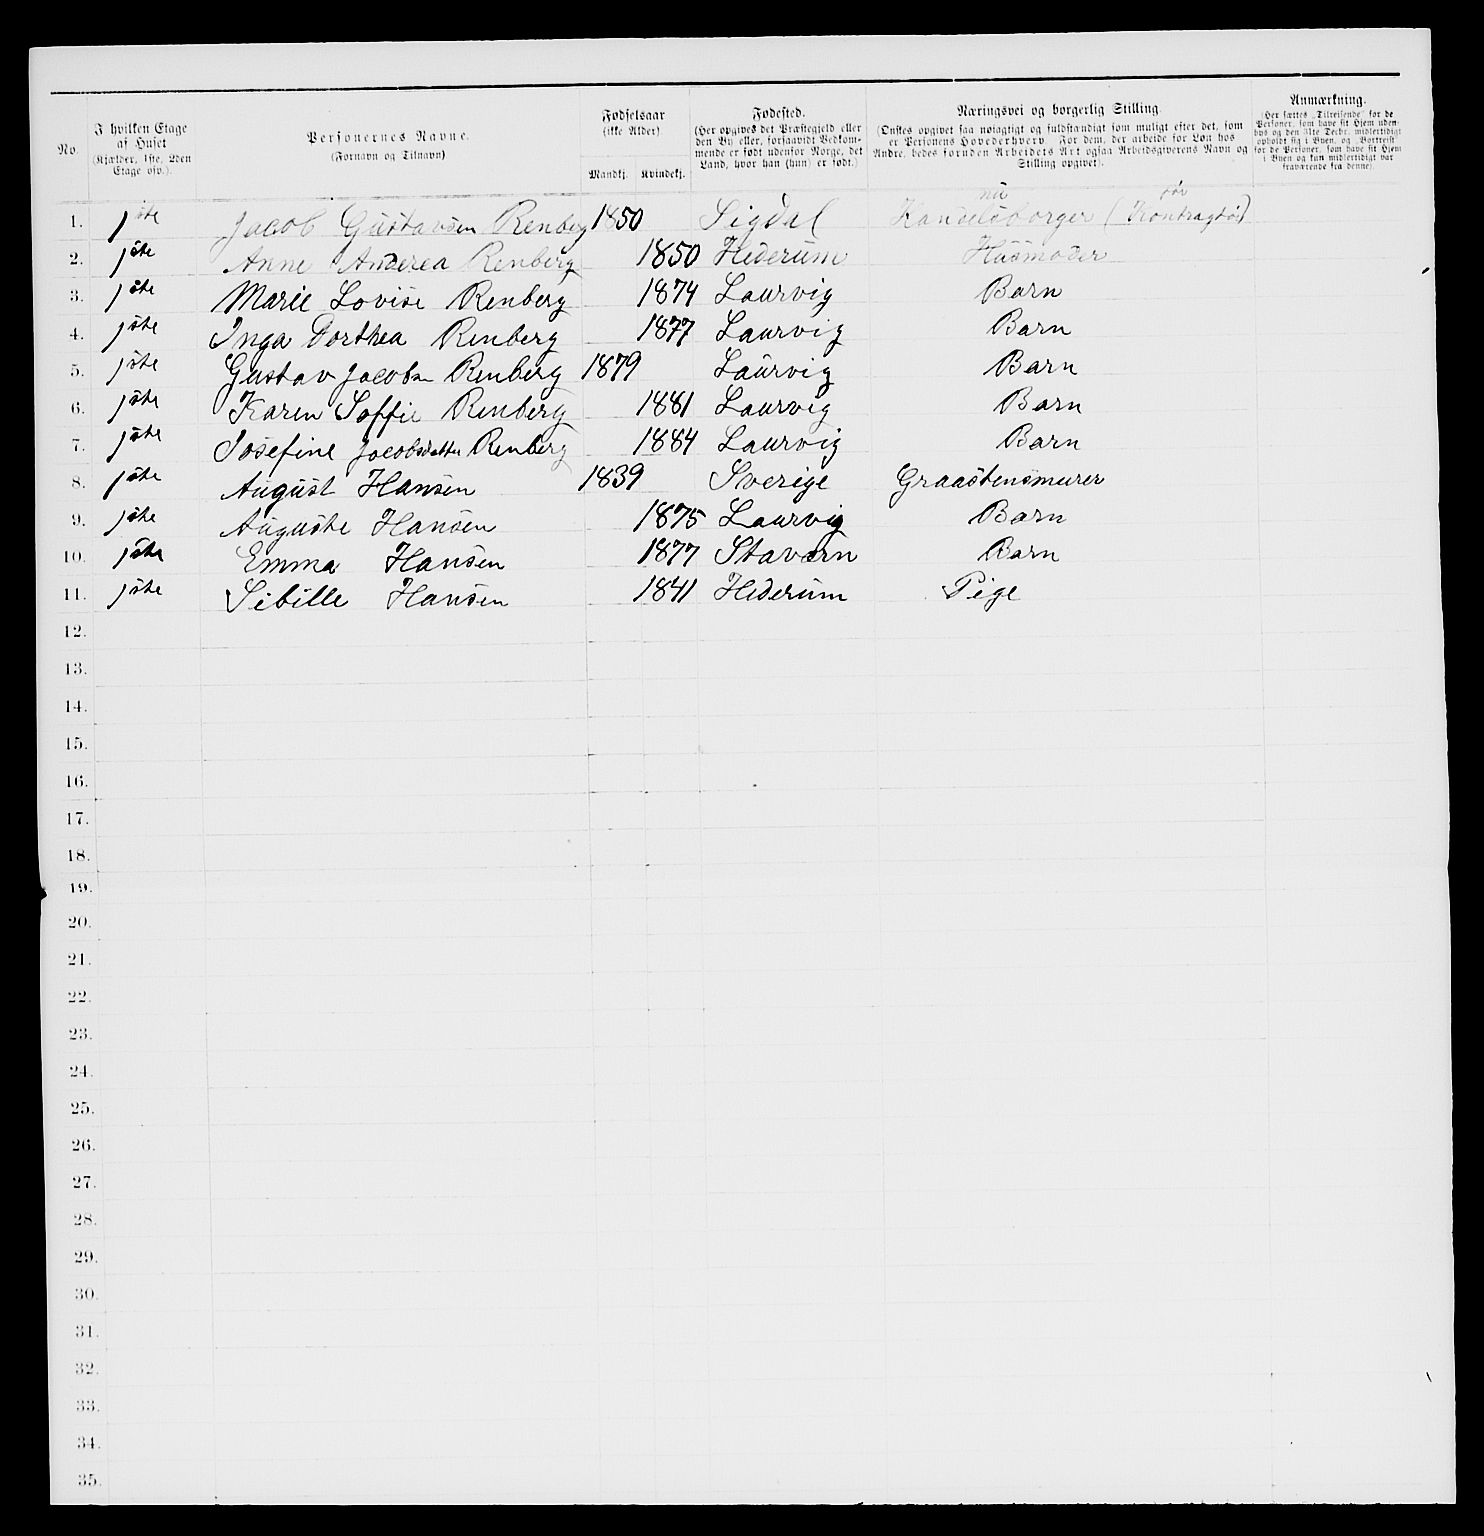 No.
I hvilken Etage af Huset (Kjælder, 1ste, 2den Etage osv.).
Personernes Navne. (Fornavn og Tilnavn)
Fødselsaar (ikke Alder) Mandkj. Kvindekj.
Fødested. (Her opgives det Præstegjeld eller den By eller, forsaavidt Vedkommende er født udenfor Norge, det Land, hvor han (hun) er født.)
Næringsvei og borgerlig Stilling. (Ønskes opgivet saa nøiagtigt og fuldstændigt som muligt efter det, som er Personens Hovederhverv. For dem, der arbeide for Løn hos Andre, bedes foruden Arbeidets Art ogsaa Arbeidsgiverens Navn og Stilling opgivet).
Anmærkning. (Her sættes „Tilreisende“ for de Personer, som have sit Hjem udenbys og den 31te Decbr. midlertidigt opholdt sig i Byen, og „Bortreist“ for de Personer, som have sit Hjem i Byen og kun midlertidigt var fraværende fra denne).
nu før
1. 1ste Jacob Gustavsen Renberg 1850 Sigdal Handelsborger (Kontragtør)
2. 1ste Anne Anderea Renberg 1850 Hederum Husmoder
3. 1ste Marie Lovise Renberg 1874 Laurvig Barn
4. 1ste Inga Dorthea Renberg 1877 Laurvig Barn
5. 1ste Gustav Jacobsn Renberg 1879 Laurvig Barn
6. 1ste Karen Soffie Renberg 1881 Laurvig Barn
7. 1ste Josefine Jacobsdatter Renberg 1884 Laurvig Barn
8. 1ste August Hansen 1839 Sverige Graastensmurer
9. 1ste Auguste Hansen 1875 Laurvig Barn
10. 1ste Emma Hansen 1877 Stavern Barn
11. 1ste Sibille Hansen 1841 Hederum Pige
12.
13.
14.
15.
16.
17.
18.
19.
20.
21.
22.
23.
24.
25.
26.
27.
28.
29.
30.
31.
32.
33.
34.
35.